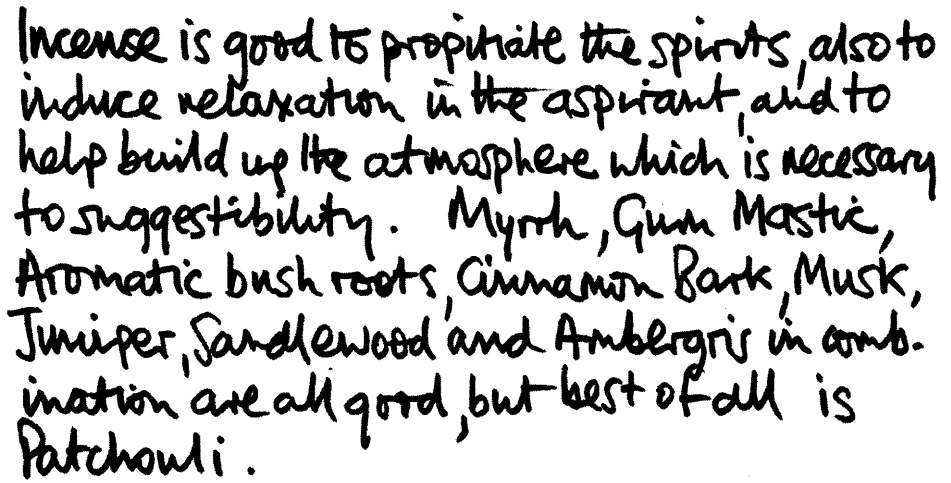 Incense is good to propitiate the spirits, also to
induce relaxation in the aspirant, and to
help build up the atmosphere which is necessary
to suggestibility. Myrrh, Gum Mastic,
Aromatic bush roots, Cinnamon Bark, Musk,
Juniper, Sandlewood and Ambergris in comb-
ination are all good, but best of all is
Patchouli.